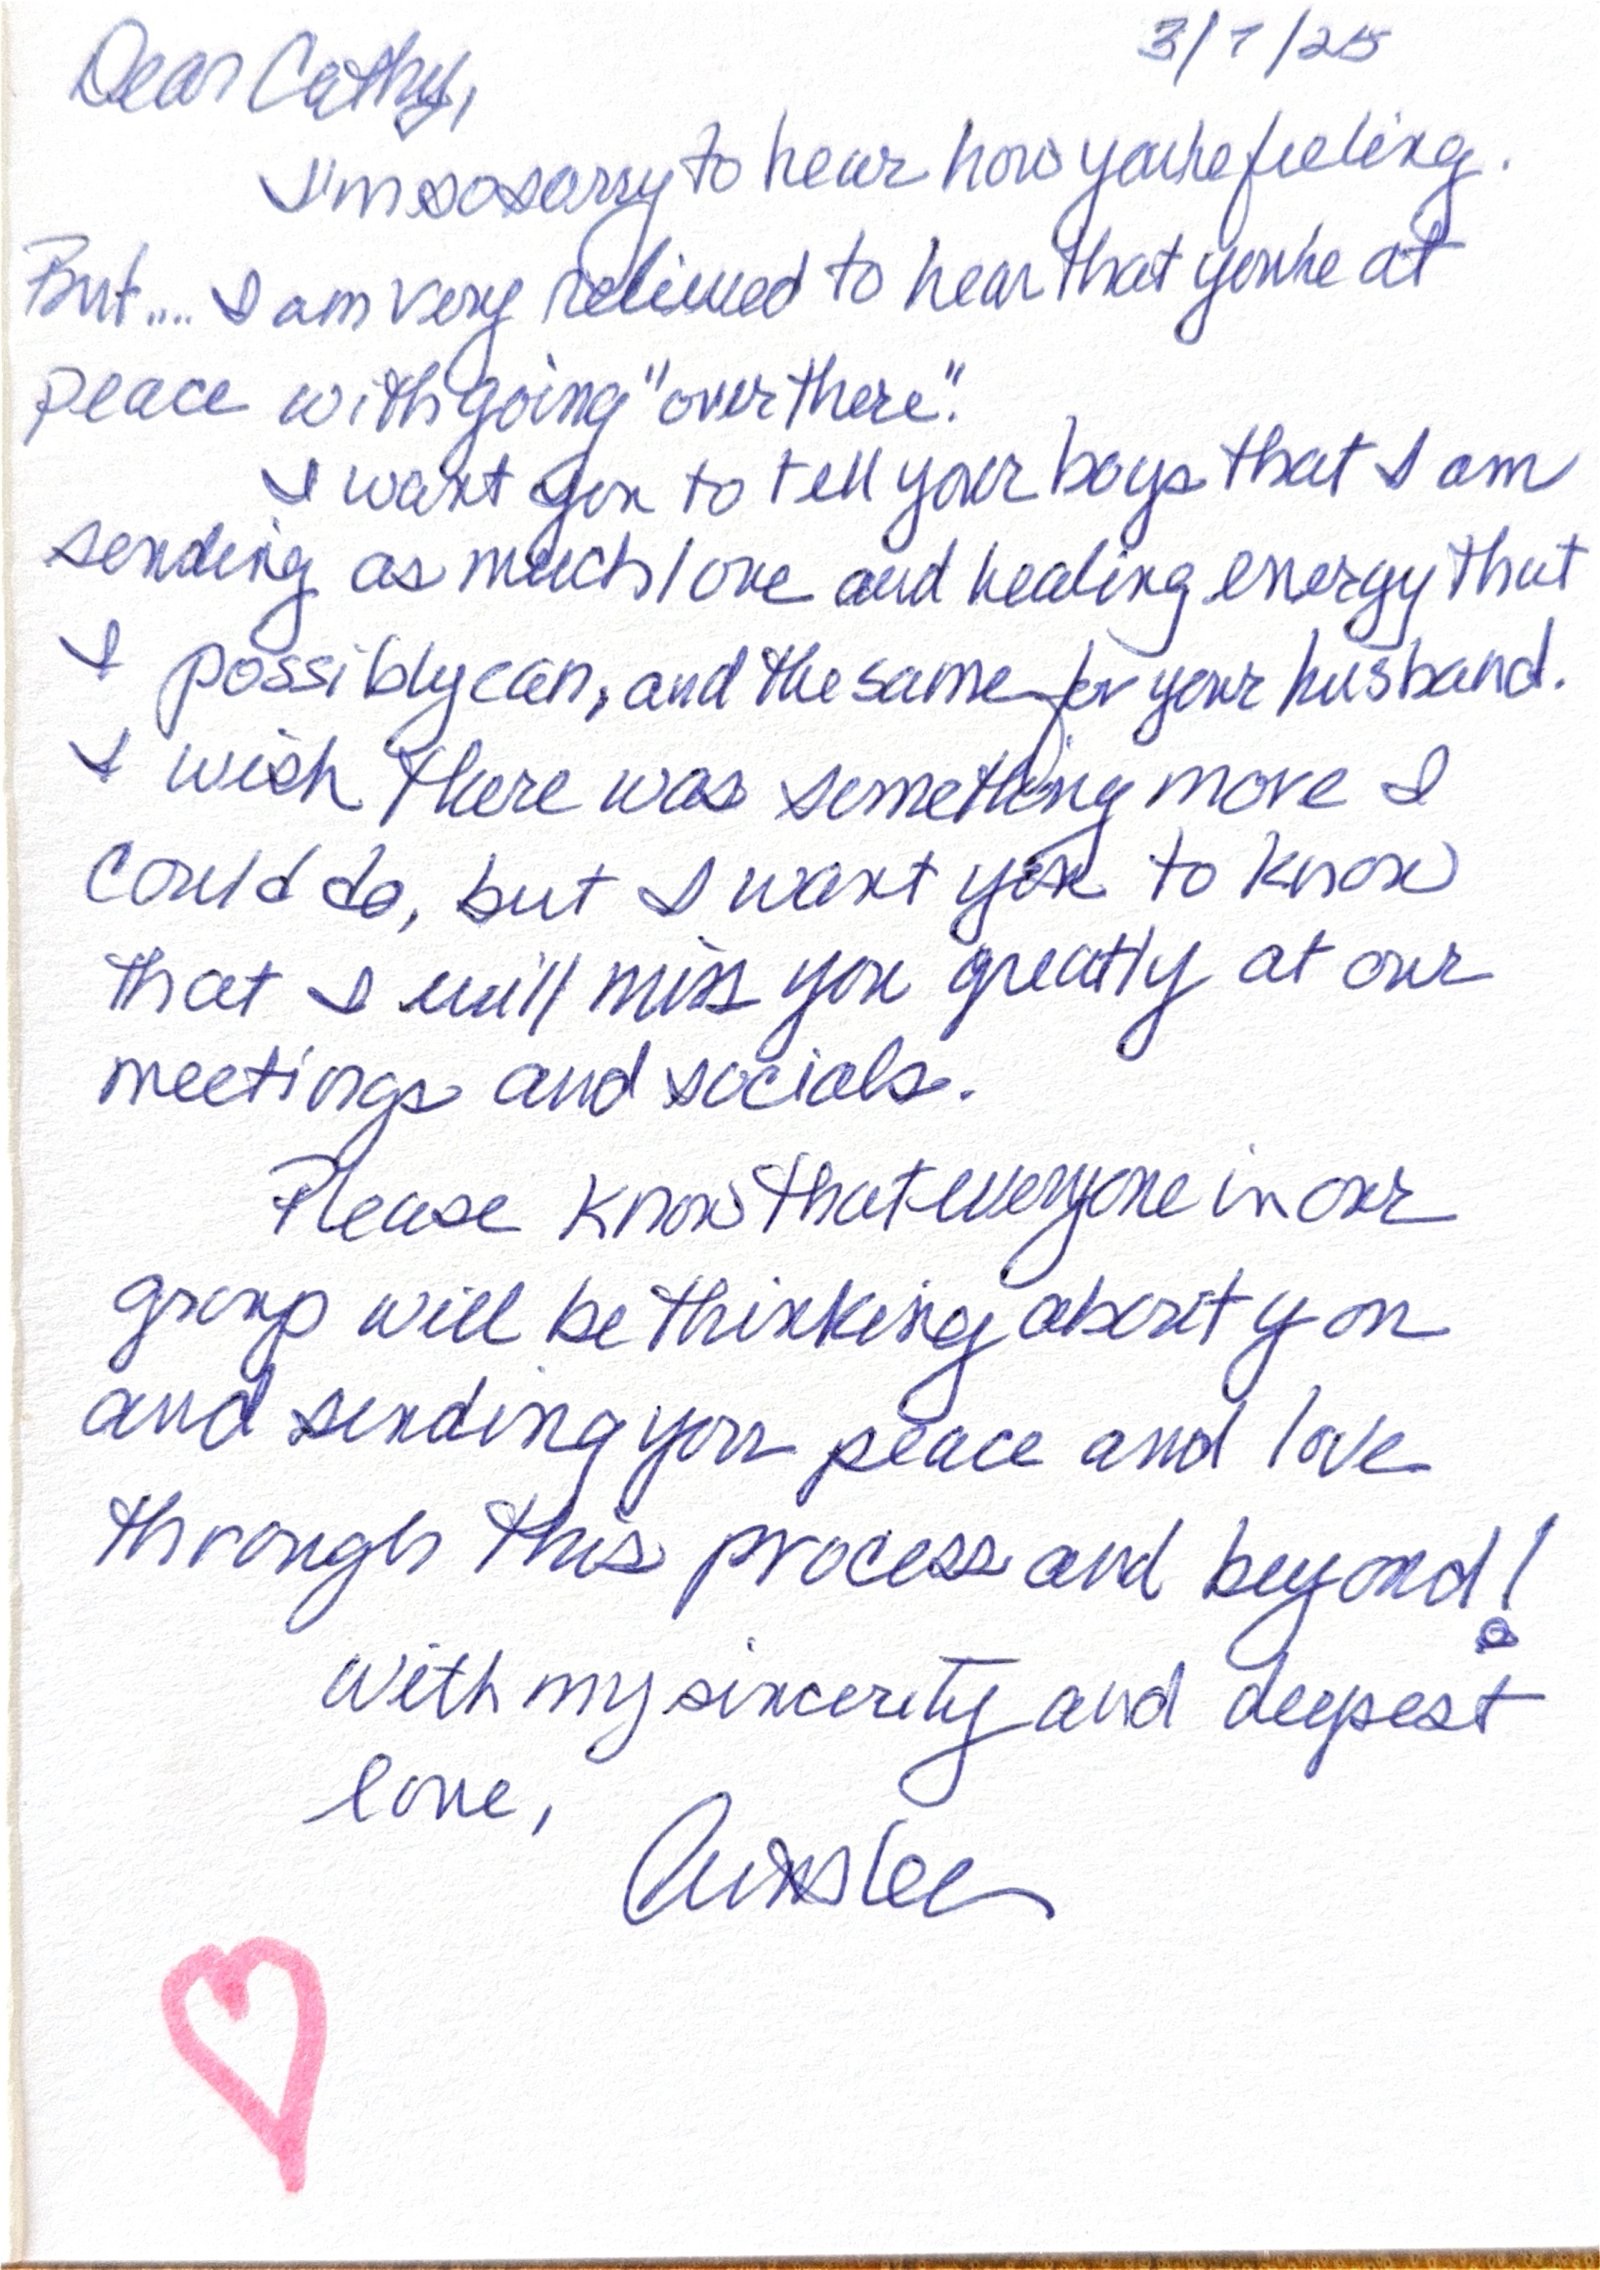 3/7/25
Dear Cathy,
I'm so sorry to hear how you're feeling.
But.... I am very relieved to hear that you're at
peace with going "over there".
I want you to tell your boys that I am
sending as much love and healing energy that
I possibly can, and the same for your husband.
I wish there was something more I
could do, but I want you to know
that I will miss you greatly at our
meetings and socials.
Please know that everyone in our
group will be thinking about you
and sending you peace and love
through this process and beyond!
With my sincerity and deepest
love,
Ainslee